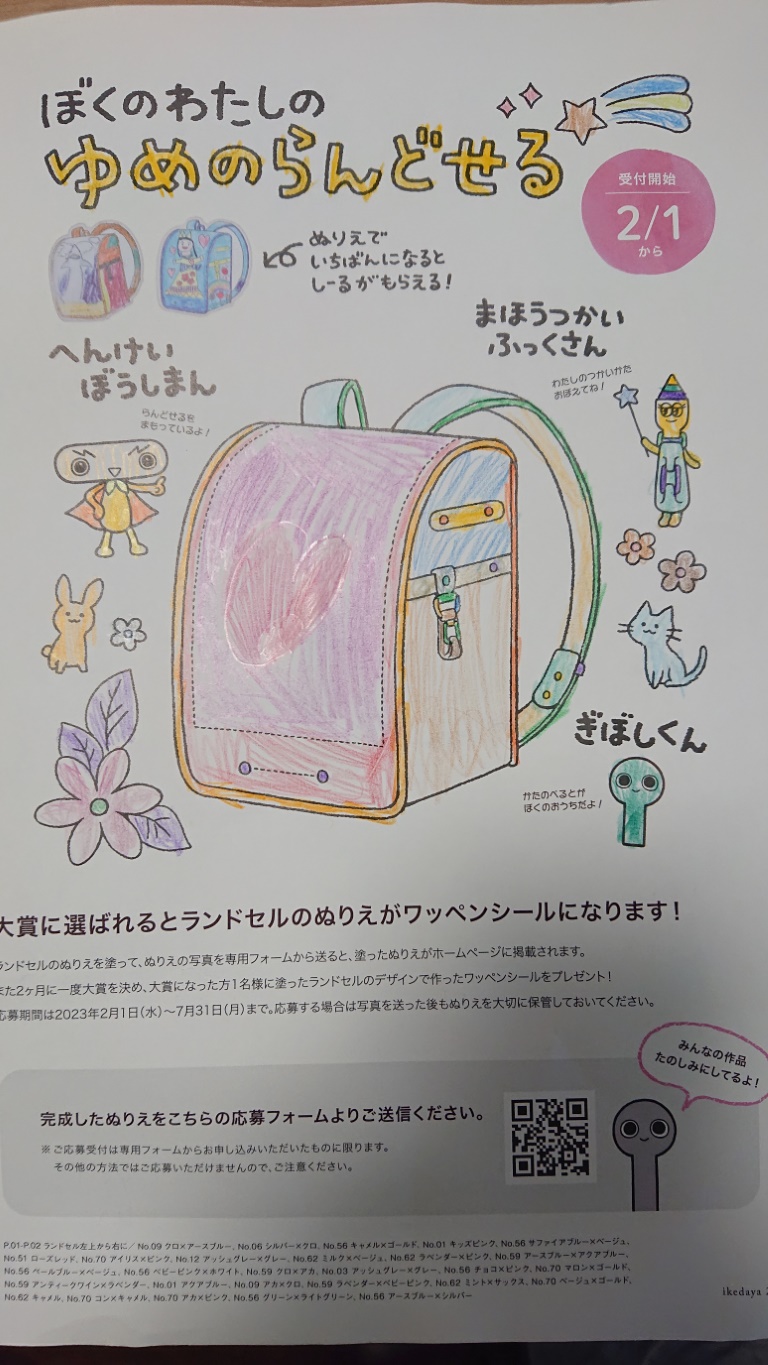 ぼくのわたしの
ゆめのらんどせる
受付開始
2/1
から
ぬりえで
いちばんになると
しーるがもらえる!
まほうつかい
ふっくさん
わたしのつかいかた
おぼえてね!
へんけい
ぼうしまん
らんどせるを
まもっているよ!
ぎぼしくん
かたのべるとが
ぼくのおうちだよ!
大賞に選ばれるとランドセルのぬりえがワッペンシールになります!
ランドセルのぬりえを塗って、ぬりえの写真を専用フォームから送ると、塗ったぬりえがホームページに掲載されます。
また2ヶ月に一度大賞を決め、大賞になった方1名様に塗ったランドセルのデザインで作ったワッペンシールをプレゼント!
応募期間は2023年2月1日(水)〜7月31日(月)まで。応募する場合は写真を送った後もぬりえを大切に保管しておいてください。
みんなの作品
たのしみにしてるよ!
完成したぬりえをこちらの応募フォームよりご送信ください。
※ご応募受付は専用フォームからお申し込みいただいたものに限ります。
その他の方法ではご応募いただけませんので、ご注意ください。
P.01-P.02 ランドセル左上から右に/ No.09 クロ×アースブルー、No.06 シルバー×クロ、No.56 キャメル×ゴールド、No.01 キッズピンク、No.56 サファイアブルー×ベージュ、
No.51 ローズレッド、No.70 アイリス×ピンク、No.12 アッシュグレー×グレー、No.62 ミルク×ベージュ、No.62 ラベンダー×ピンク、No.59 アースブルー×アクアブルー、
No.56 ペールブルー×ベージュ、No.56 ベビーピンク×ホワイト、No.59 クロ×アカ、No.03 アッシュグレー×グレー、No.56 チョコ×ピンク、No.70 マロン×ゴールド、
No.59 アンティークワイン×ラベンダー、No.01 アクアブルー、No.09 アカ×クロ、No.59 ラベンダー×ベビーピンク、No.62 ミント×サックス、No.70 ベージュ×ゴールド、
No.62 キャメル、No.70 コン×キャメル、No.70 アカ×ピンク、No.56 グリーン×ライトグリーン、No.56 アースブルー×シルバー
ikedaya